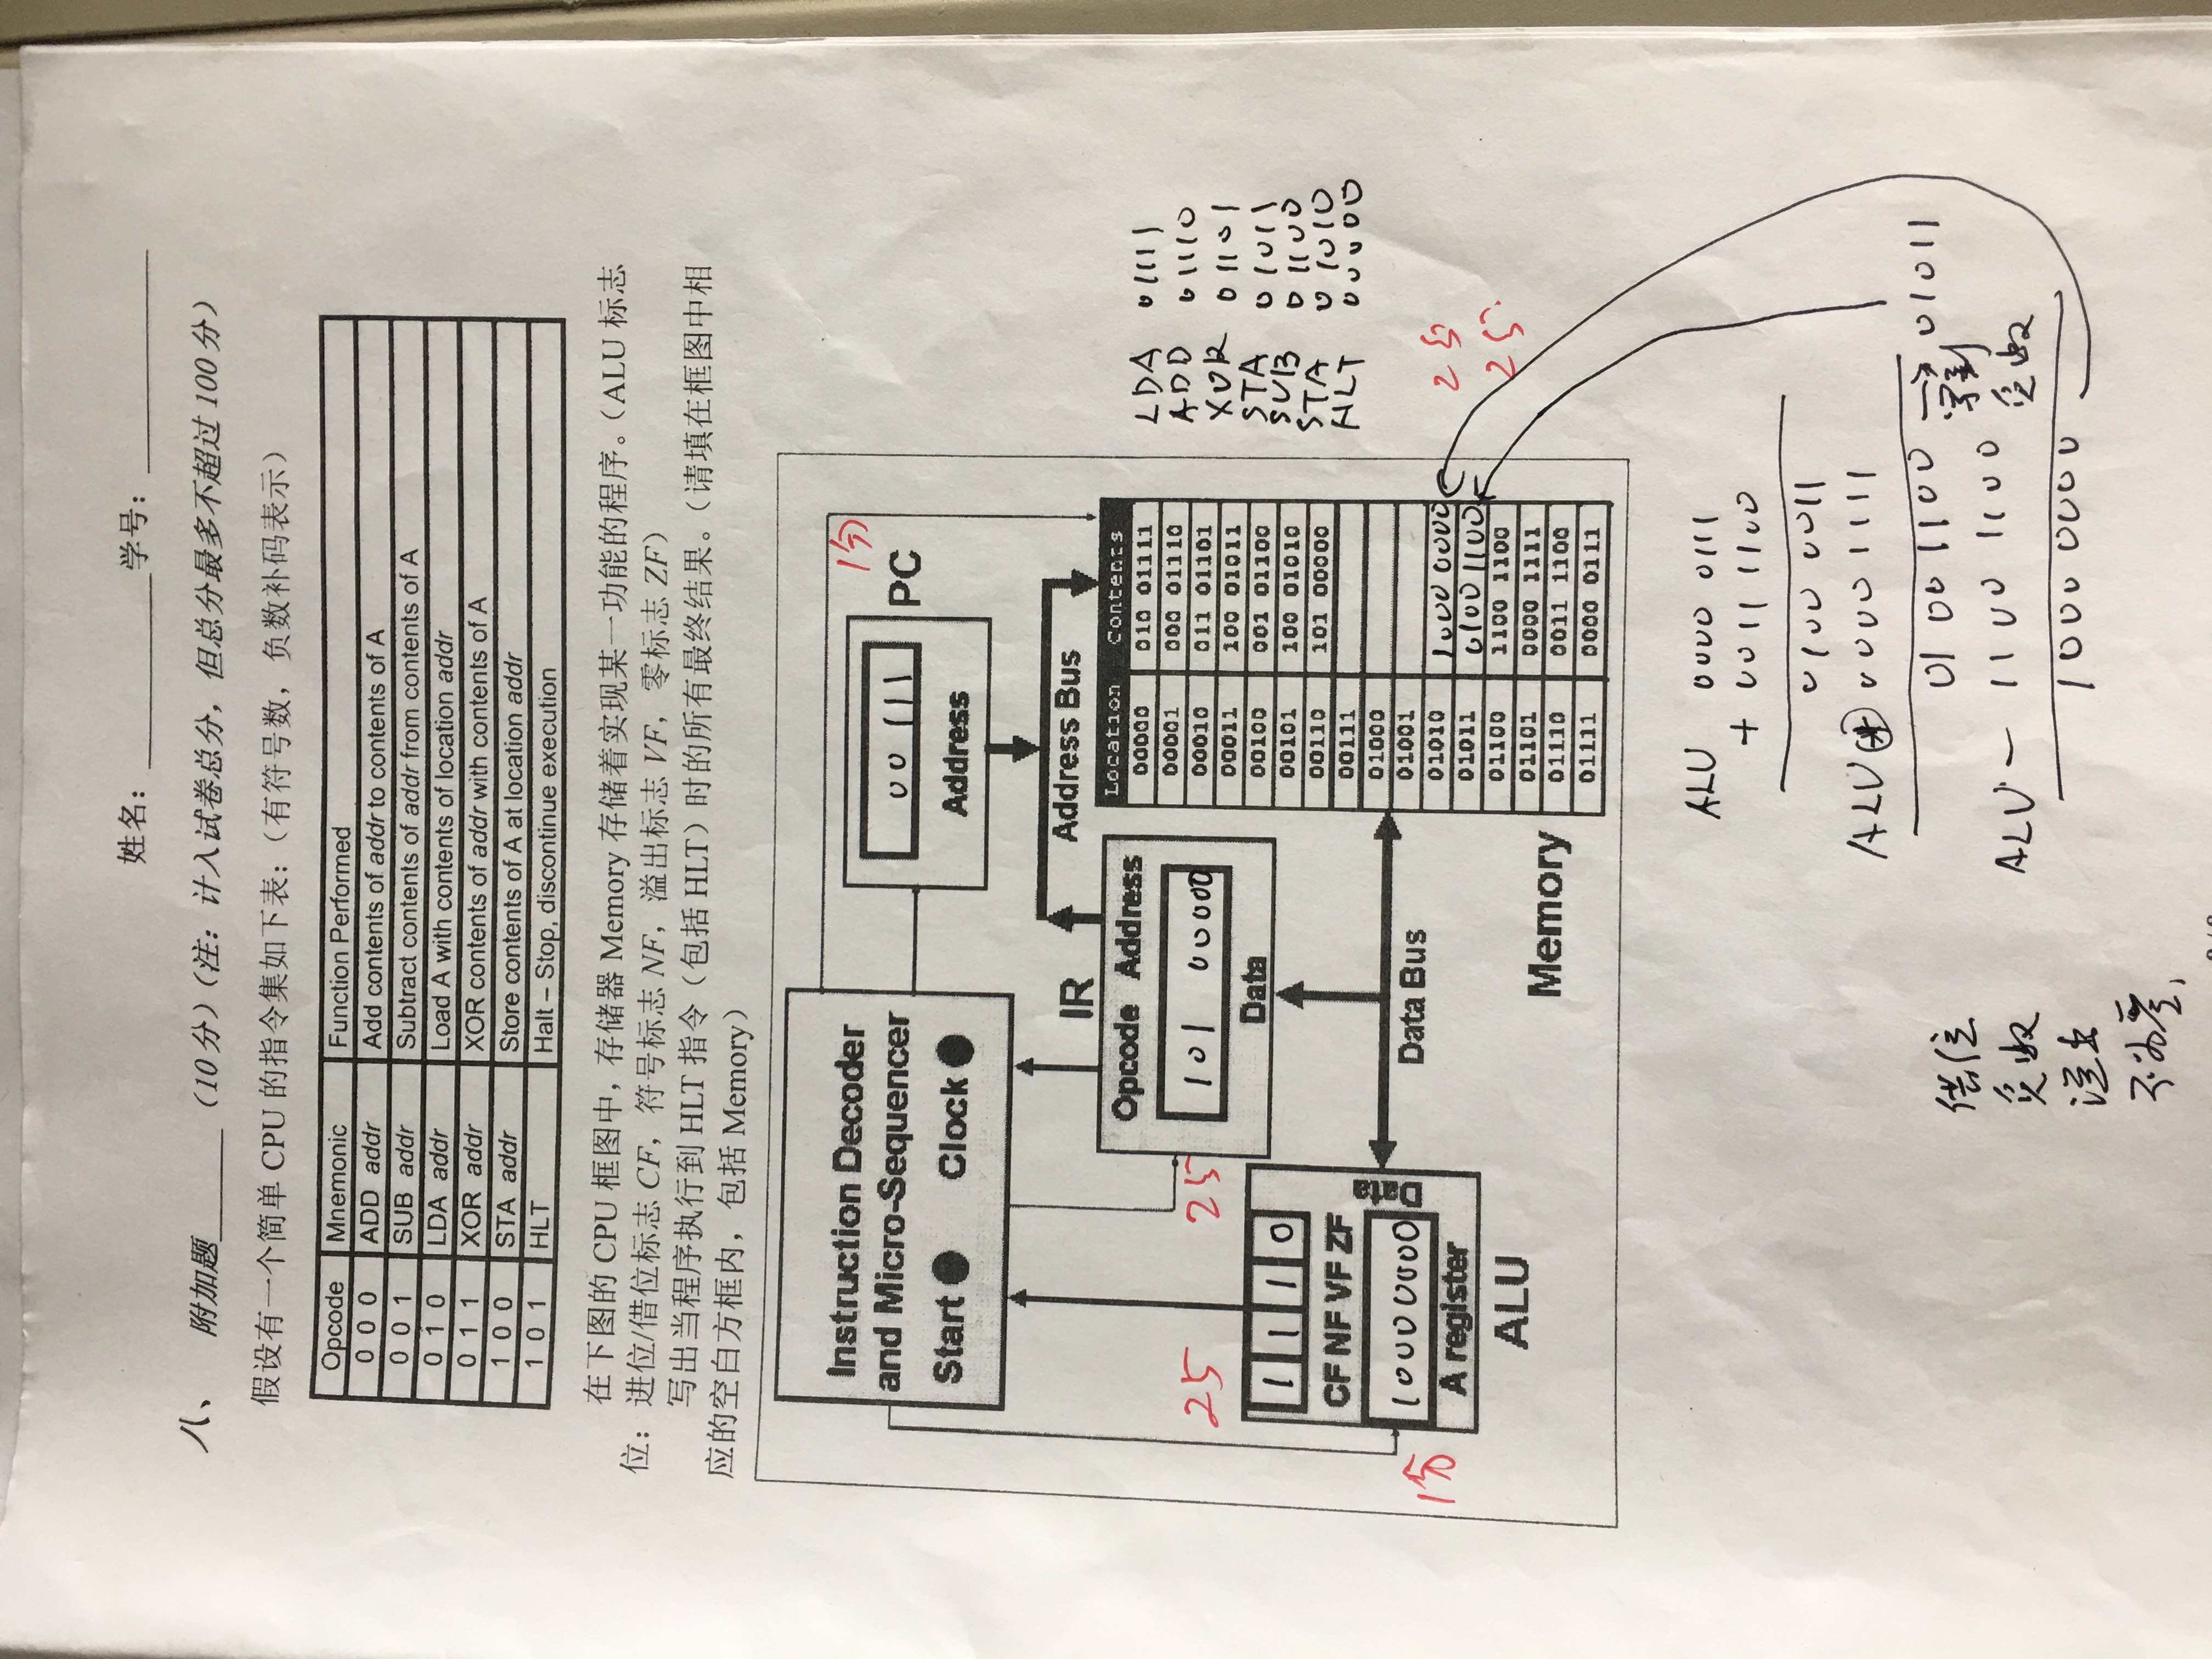 姓名：__________学号：__________
八、 附加题______（10分）（注：计入试卷总分，但总分最多不超过100分）
假设有一个简单 CPU 的指令集如下表：（有符号数，负数补码表示）
Opcode Mnemonic Function Performed
0 0 0 ADD addr Add contents of addr to contents of A
0 0 1 SUB addr Subtract contents of addr from contents of A
0 1 0 LDA addr Load A with contents of location addr
0 1 1 XOR addr XOR contents of addr with contents of A
1 0 0 STA addr Store contents of A at location addr
1 0 1 HLT Halt – Stop, discontinue execution
在下图的 CPU 框图中，存储器 Memory 存储着实现某一功能的程序。（ALU 标志
位：进位/借位标志 CF，符号标志 NF，溢出标志 VF，零标志 ZF）
写出当程序执行到 HLT 指令（包括 HLT）时的所有最终结果。（请填在框图中相
应的空白方框内，包括 Memory）
Instruction Decoder
and Micro-Sequencer
Start Clock
1分
00 111
PC
Address
Address Bus
IR
Opcode Address
101 00000
Data
2分
2分
1 1 1 0
CF NF VF ZF
10000000
Data
A register
1分
ALU
Data Bus
Memory
Location Contents
00000 010 01111
00001 000 01110
00010 011 01101
00011 100 01011
00100 001 01100
00101 100 01010
00110 101 00000
00111
01000
01001
01010 1000 0000
01011 0100 1100
01100 1100 1100
01101 0000 1111
01110 0011 1100
01111 0000 0111
LDA 01111
ADD 01110
XOR 01101
STA 01011
SUB 01100
STA 01010
HLT 00000
2分
2分
ALU 0000 0111
+ 0011 1100
0100 0011
ALU ⊛ 0000 1111
01 00 1100 → 01011
写到
ALU - 1100 1100 负数
1000 0000
借位
负数
溢出
不为零，